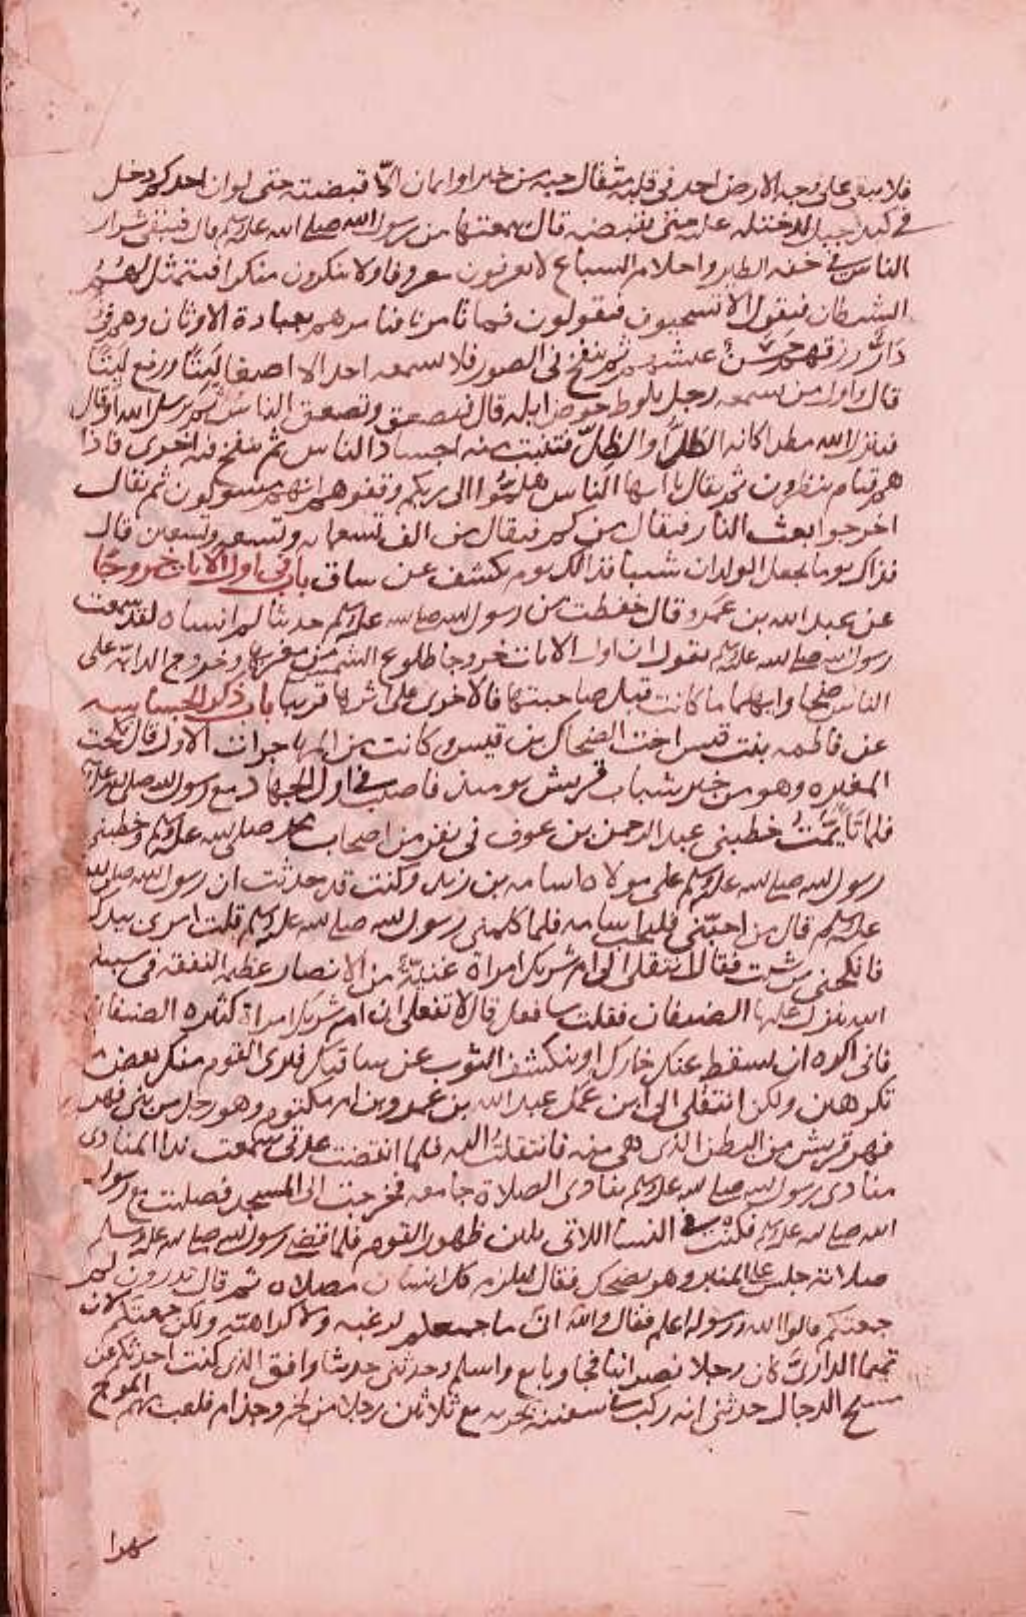 فلا يبقى على وجه الارض احد في قلبه مثقال حبة من خير او ايمان الا قبضته حتى لو ان احدكم دخل
في كبد جبل لدخلته عليه حتى تقبضه قال سمعتها من رسول الله صلى الله عليه وسلم قال فيبقى شرار
الناس في خفة الطير واحلام السباع لا يعرفون معروفا ولا ينكرون منكرا فيتمثل لهم
الشيطان فيقول الا تستجيبون فيقولون فما تامرنا فيامرهم بعبادة الاوثان وهم في
دار رزقهم حسن عيشهم ثم ينفخ في الصور فلا يسمعه احد الا اصغا ليتا ورفع ليتا
قال واول من يسمعه رجل يلوط حوض ابله قال فيصعق وتصعق الناس ثم يرسل الله او قال
ينزل الله مطرا كانه الطل او الظل فتنبت منه اجساد الناس ثم ينفخ فيه اخرى فاذا
هم قيام ينظرون ثم يقال يا ايها الناس هلموا الى ربكم وقفوهم انهم مسئولون ثم يقال
اخرجوا بعث النار فيقال من كم فيقال من الف تسعماية وتسعة وتسعين قال
فذاك يوما يجعل الولدان شيبا فذالك يوم يكشف عن ساق باب في اول الايات خروجا
عن عبد الله بن عمرو قال حفظت من رسول الله صلى الله عليه وسلم حديثا لم انساه لقد سمعت
رسول الله صلى الله عليه وسلم يقول ان اول الايات خروجا طلوع الشمس من مغربها وخروج الدابة على
الناس ضحا وايهما ما كانت قبل صاحبتها فالاخرى على اثرها قريبا باب ذكر الجساسه
عن فاطمه بنت قيس اخت الضحاك بن قيس وكانت من المهاجرات الاول قال نكحت
المغيره وهو من خير شباب قريش يوميذ فاصيب في اول الجهاد مع رسول الله صلى الله عليه
فلما تايمت خطبني عبد الرحمن بن عوف في نفر من اصحاب محمد صلى الله عليه وسلم وخطبني
رسول الله صلى الله عليه وسلم على مولاه اسامه بن زيد وكنت قد حدثت ان رسول الله صلى الله
عليه وسلم قال من احبني فليحب اسامه فلما كلمني رسول الله صلى الله عليه وسلم قلت امري بيدك
فانكحني من شيت فقال انتقلي الى ام شريك امراة غنية من الانصار عظيمة النفقه في سبيل
الله ينزل عليها الضيفان فقلت سافعل قال لا تفعلي ان ام شريك امراة كثيره الضيفان
فاني اكره ان يسقط عنك خمارك او ينكشف الثوب عن ساقيك فيرى القوم منك بعض
تكرهين ولكن انتقلي الى ابن عمك عبد الله بن عمرو بن ام مكتوم وهو رجل من بني فهر
فهر قريش من البطن الذي هي منه فانتقلت اليه فلما انقضت عدتي سمعت ندا المنادي
منادي رسول الله صلى الله عليه وسلم ينادي الصلاة جامعه فخرجت الى المسجد فصليت مع رسول
الله صلى الله عليه وسلم فكنت في النسا اللاتي يلين ظهور القوم فلما قضى رسول الله صلى الله عليه وسلم
صلاته جلس على المنبر وهو يضحك فقال ليلزم كل انسان مصلاه ثم قال تدرون لم
جمعتكم قالوا الله ورسوله اعلم فقال والله اني ما جمعتكم لرغبه ولا كراهته ولكن جمعتكم لان
تميما الداري كان رجلا نصرانيا فجا وبايع واسلم وحدثني حديثا وافق الذي كنت احدثكم عن
مسيح الدجال حدثني انه ركب في سفينة بحريه مع ثلاثين رجلا من لخم وجذام فلعب بهم الموج
شهرا